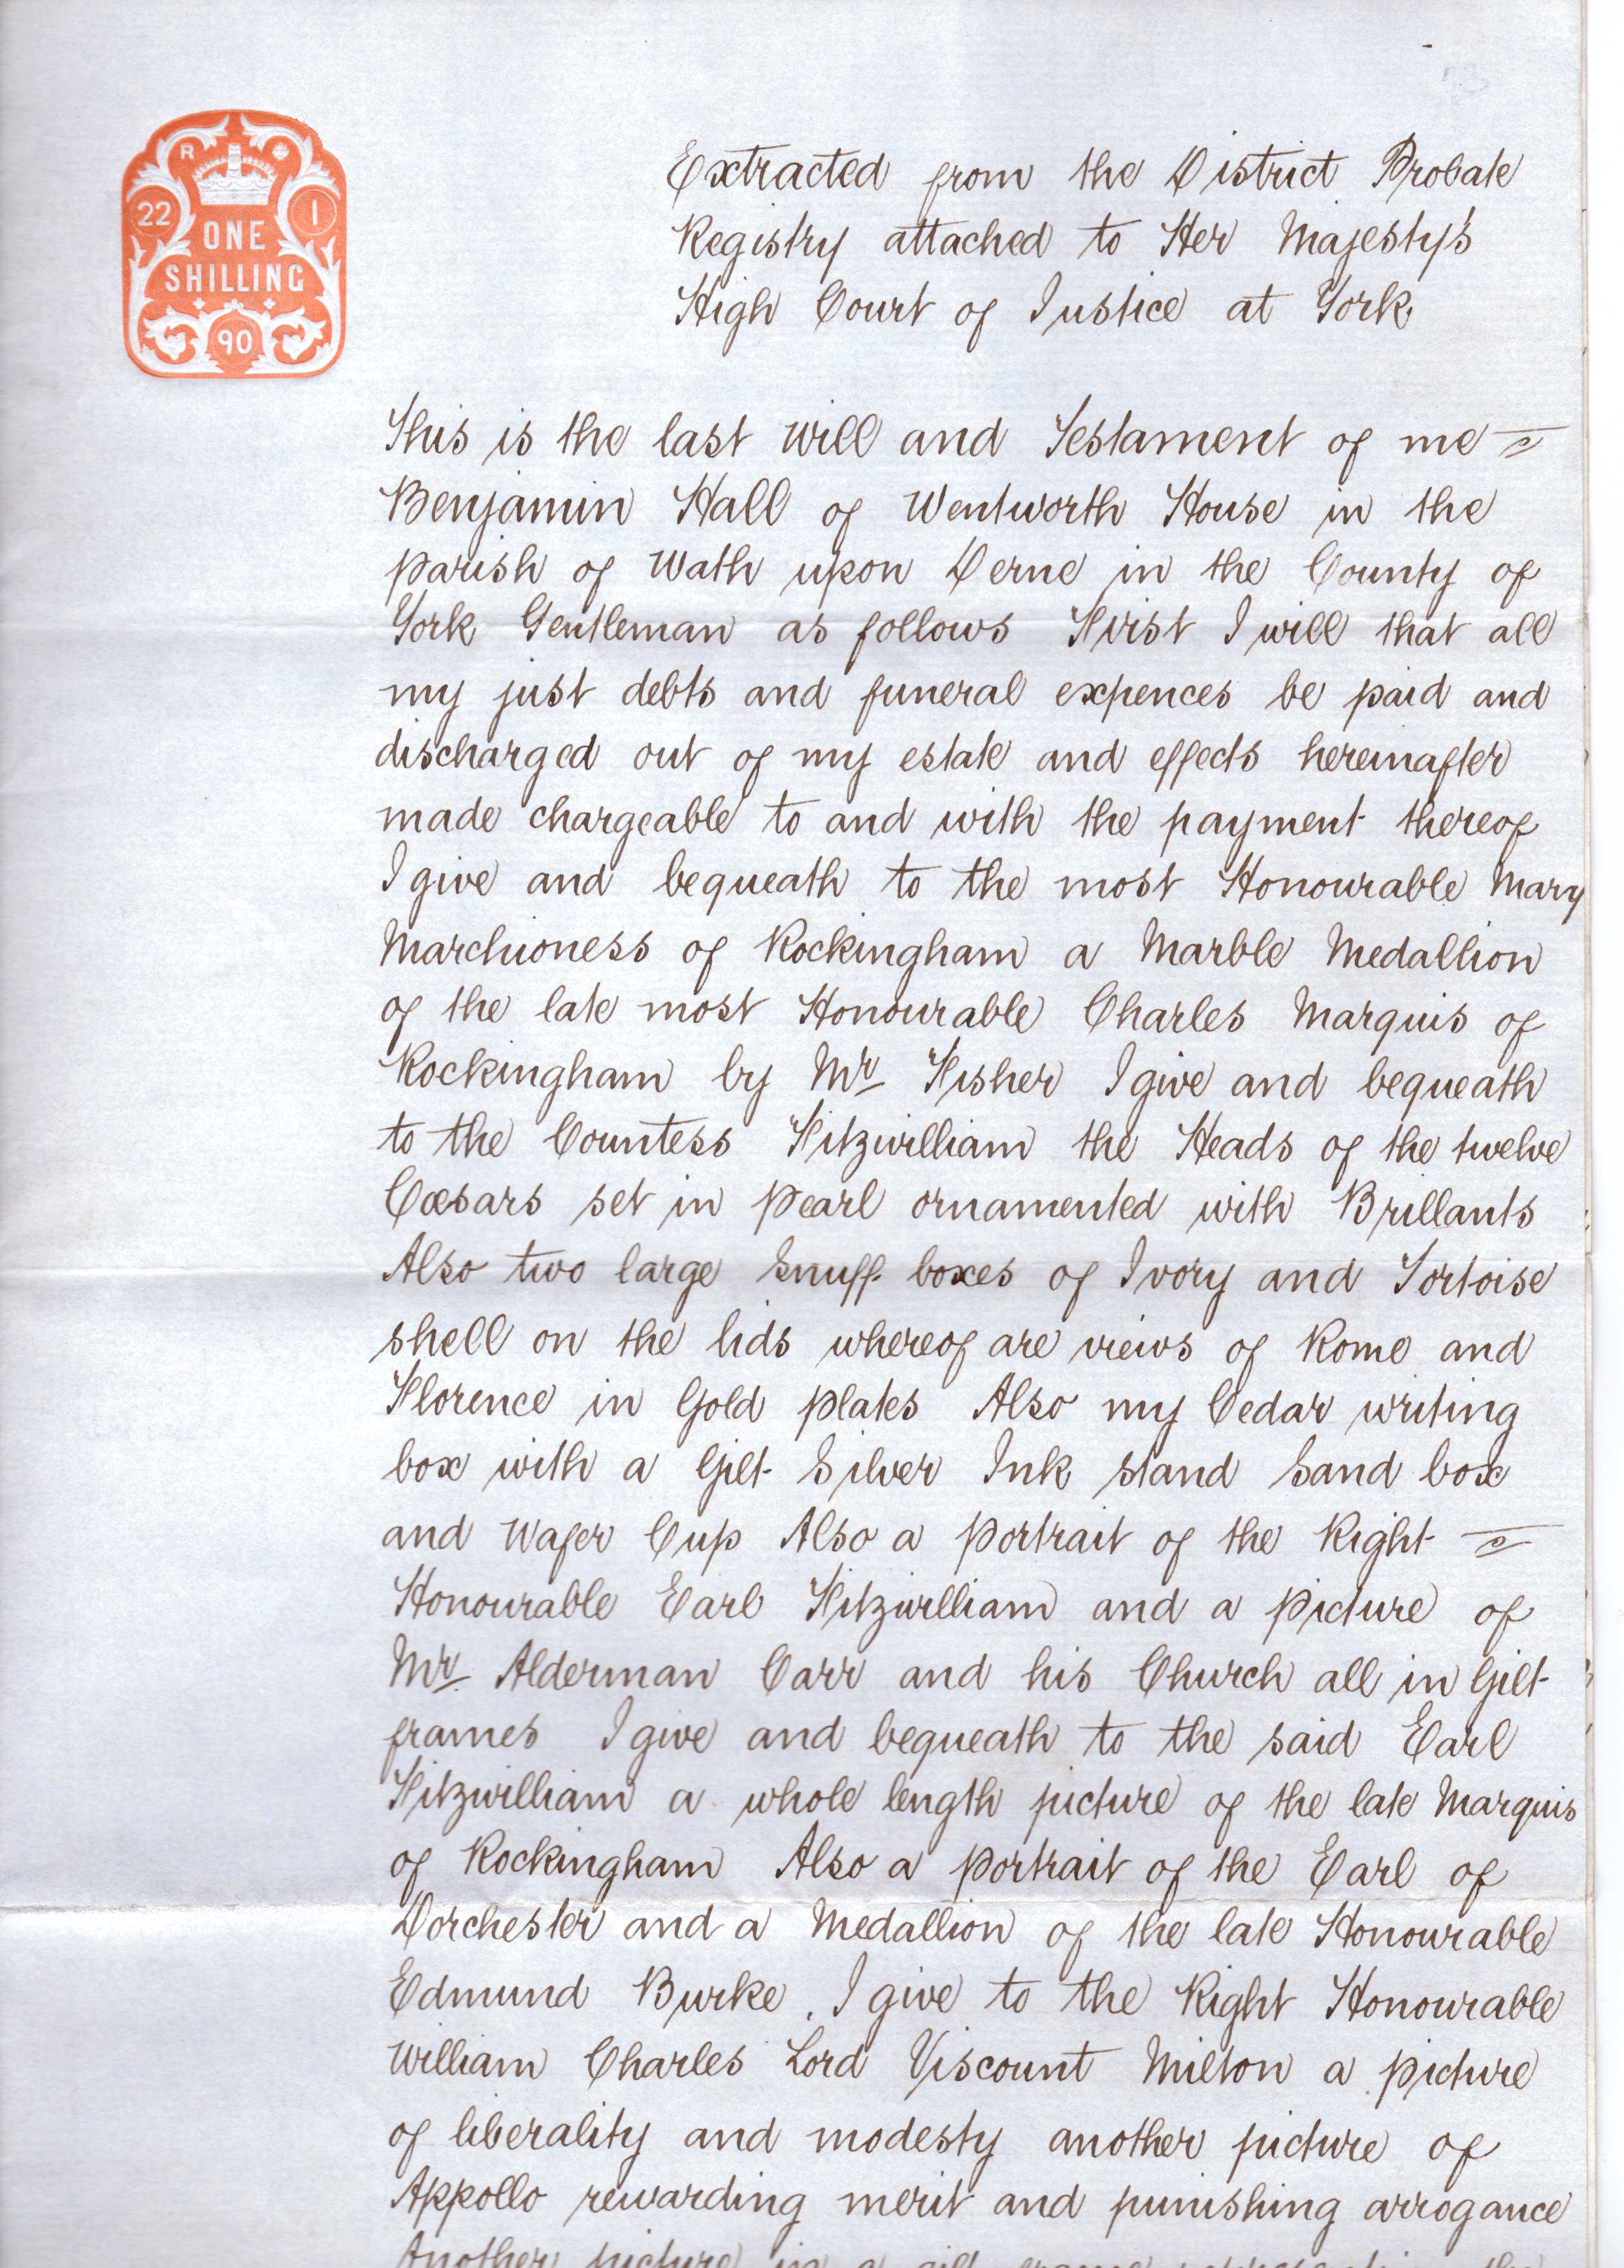 R
22
1
ONE
SHILLING
90
Extracted from the District Probate
Registry attached to Her Majesty's
High Court of Justice at York
This is the last will and Testament of me
Benjamin Hall of Wentworth House in the
parish of Wath upon Derne in the County of
York Gentleman as follows First I will that all
my just debts and funeral expences be paid and
discharged out of my estate and effects hereinafter
made chargeable to and with the payment thereof
I give and bequeath to the most Honourable Mary
Marchioness of Rockingham a Marble Medallion
of the late most Honourable Charles Marquis of
Rockingham by Mr Fisher I give and bequeath
to the Countess Fitzwilliam the Heads of the twelve
Cæsars set in pearl ornamented with Brillants
Also two large Snuff boxes of Ivory and Tortoise
shell on the lids whereof are views of Rome and
Florence in Gold plates Also my Cedar writing
box with a Gilt Silver Ink stand Sand box
and Wafer Cup Also a portrait of the Right
Honourable Earl Fitzwilliam and a picture of
Mr Alderman Carr and his Church all in Gilt
frames I give and bequeath to the said Earl
Fitzwilliam a whole length picture of the late Marquis
of Rockingham Also a portrait of the Earl of
Dorchester and a Medallion of the late Honourable
Edmund Burke. I give to the Right Honourable
William Charles Lord Viscount Milton a picture
of liberality and modesty another picture of
Appollo rewarding merit and punishing arrogance
Another picture in a gilt frame